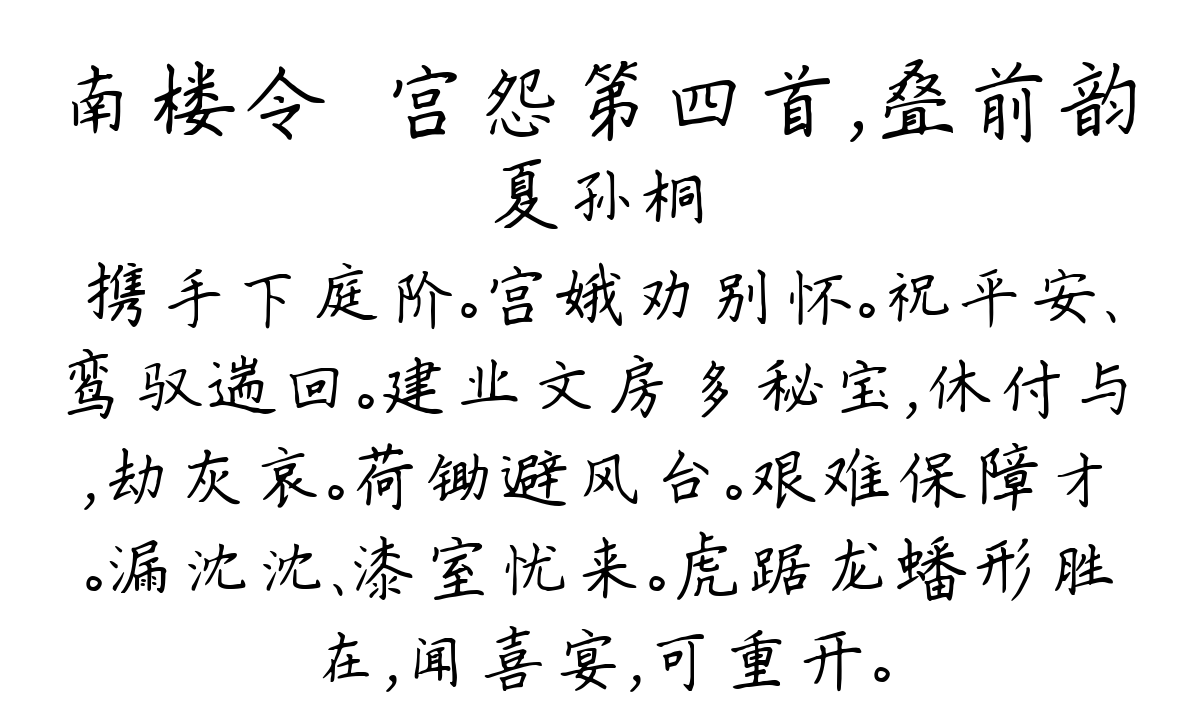 南楼令 宫怨第四首,叠前韵
夏孙桐
携手下庭阶。宫娥劝别怀。祝平安、
鸾驭遄回。建业文房多秘宝,休付与
,劫灰哀。荷锄避风台。艰难保障才
。漏沈沈、漆室忧来。虎踞龙蟠形胜
在,闻喜宴,可重开。